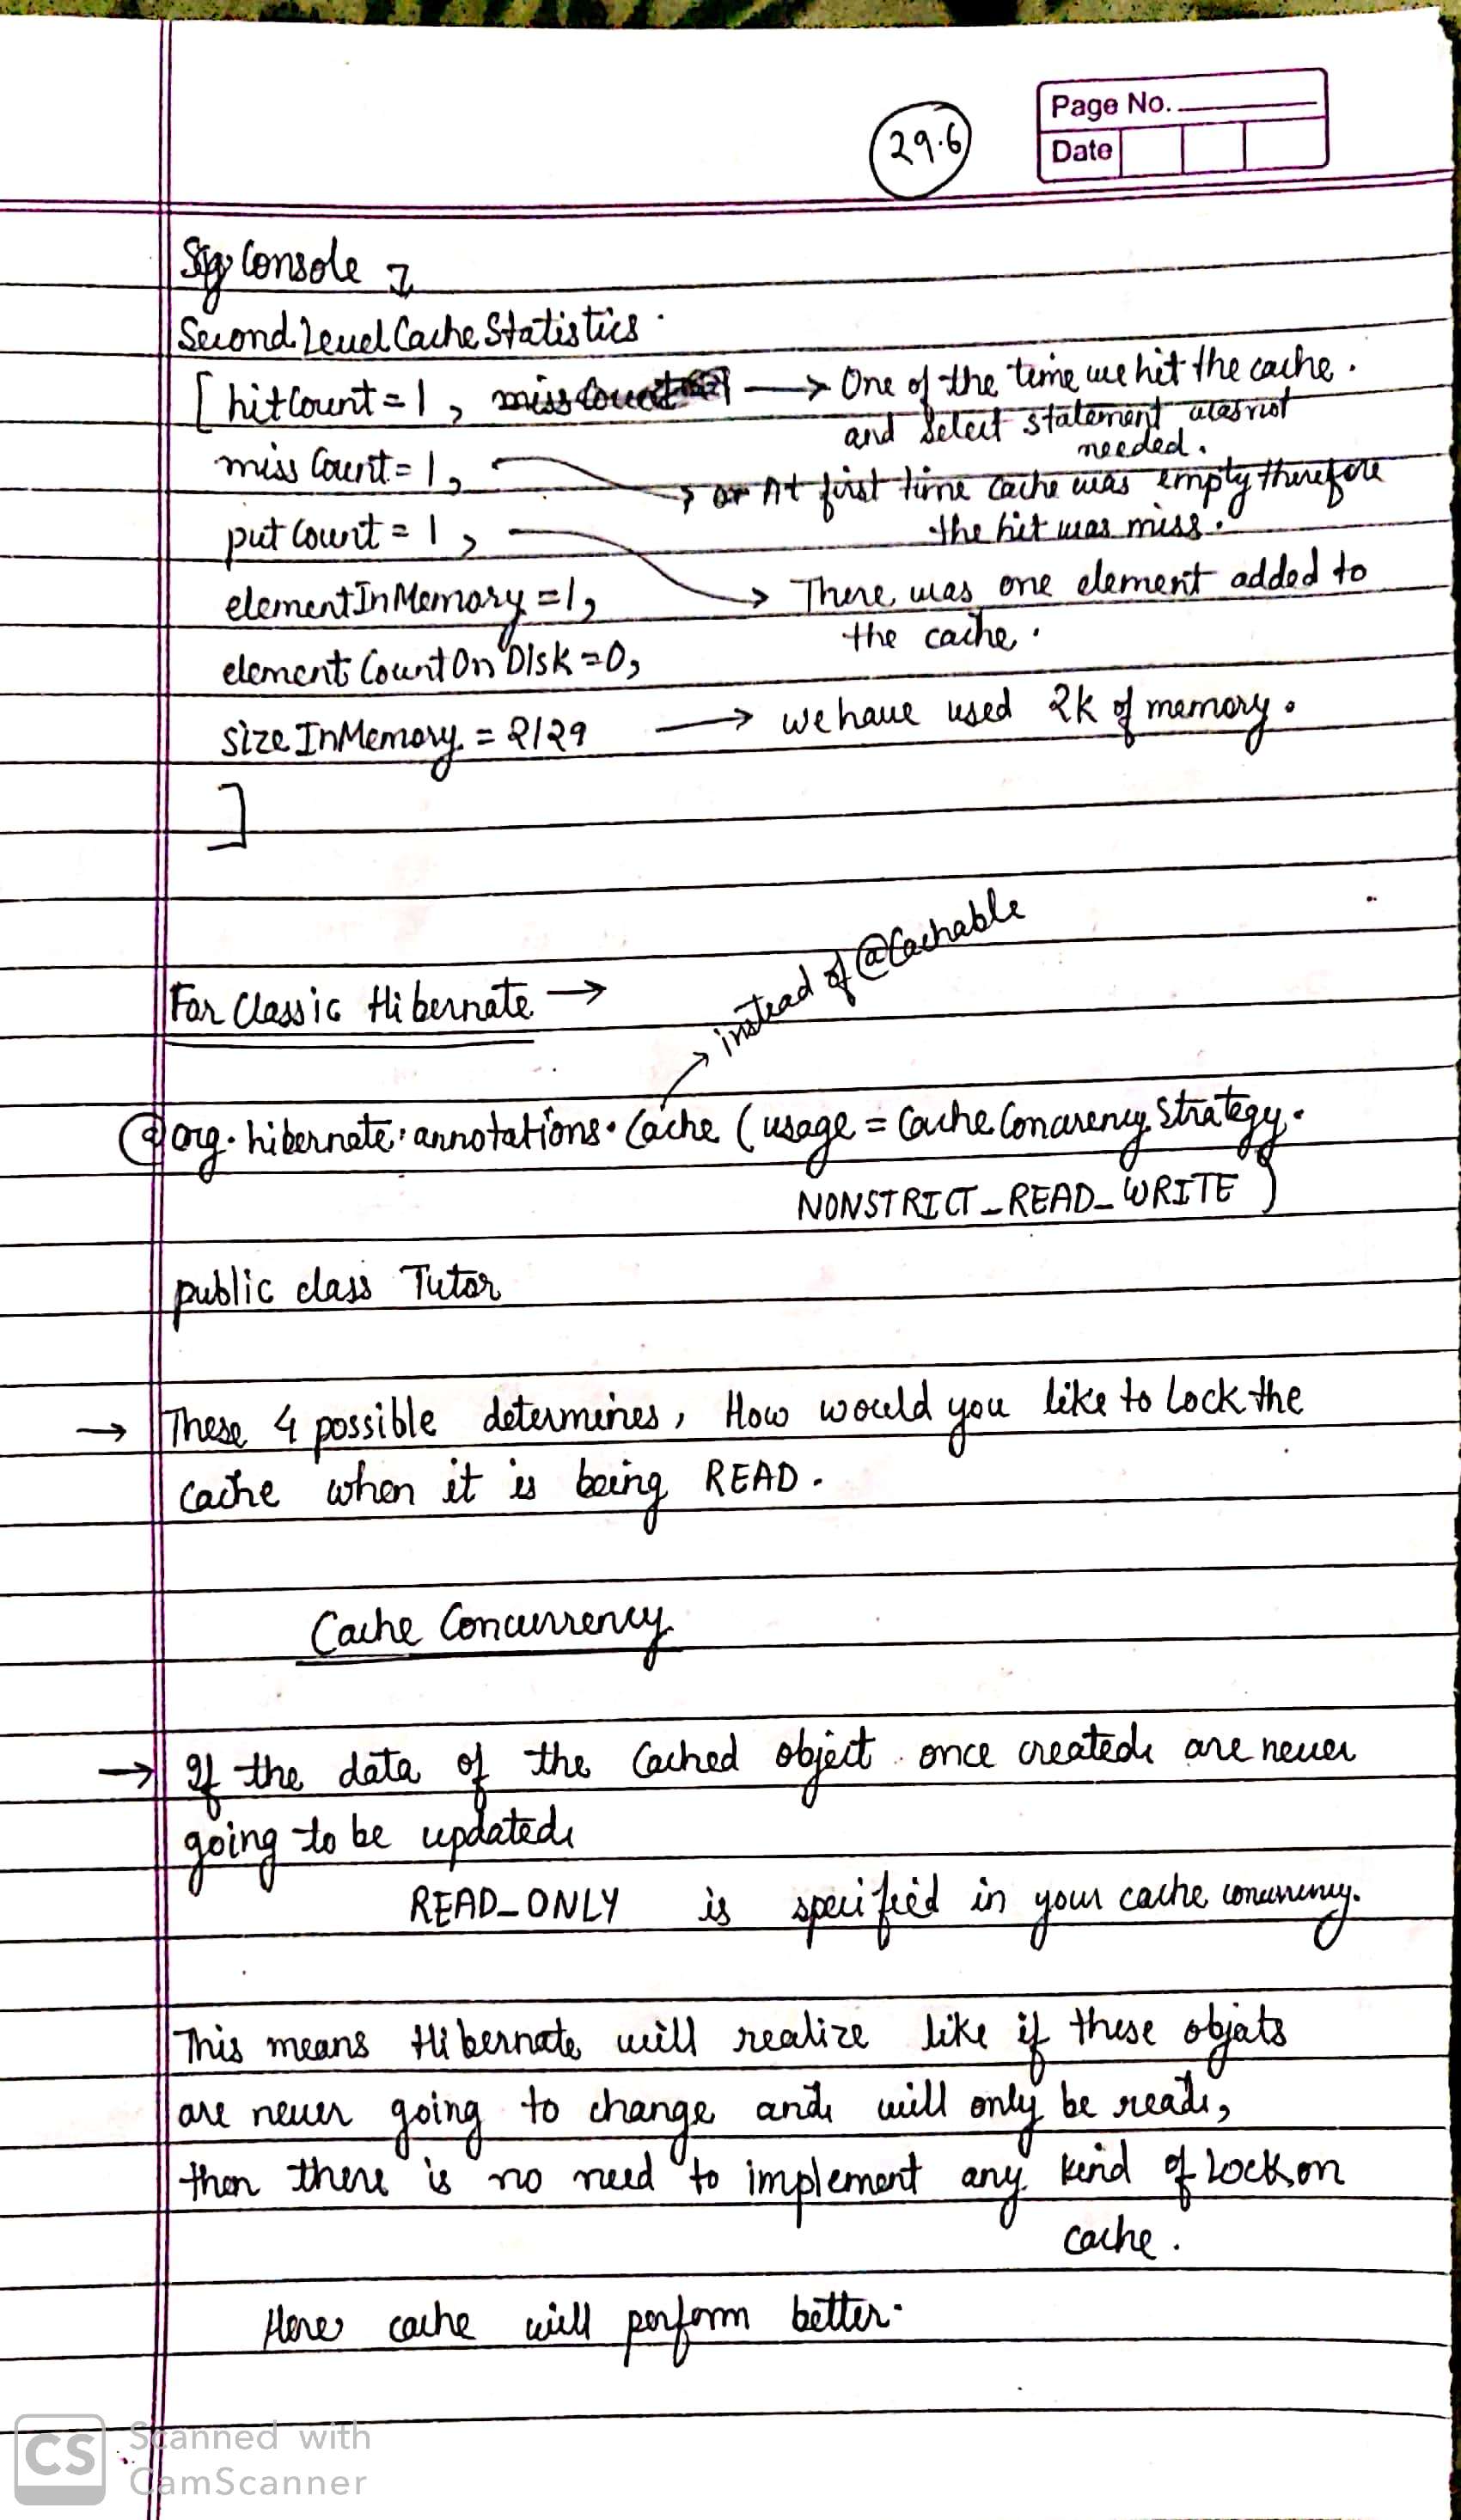 29.6
Page No.
Date
Console
Second Level Cache Statistics.
[ hitCount = 1, → One of the time we hit the cache.
and select statement was not
needed.
miss Count = 1, → At first time cache was empty therefore
the hit was miss.
put Count = 1, → There was one element added to
the cache.
elementInMemory = 1,
element Count On Disk = 0,
size InMemory = 2129 → we have used 2k of memory.
]
For Classic Hibernate →
→ instead of @Cachable
@org.hibernate.annotations.Cache (usage = Cache Concurency Strategy.
NONSTRICT_READ_WRITE)
public class Tutor
→ These 4 possible determines, How would you like to Lock the
cache when it is being READ.
Cache Concurrency
→ If the data of the Cached object once created are never
going to be updated
READ_ONLY is specified in your cache concurrency.
This means Hibernate will realize like if these objects
are never going to change and will only be read,
then there is no need to implement any kind of Lock on
cache.
Here cache will perform better.
CS Scanned with
CamScanner